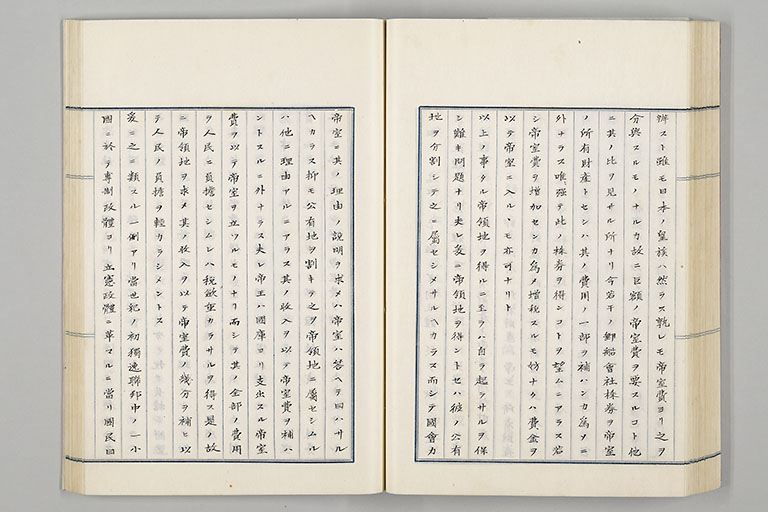 辨スト雖モ日本ノ皇族ハ然ラス孰レモ帝室費ヨリ之ヲ
分與スルモノナルカ故ニ巨額ノ帝室費ヲ要スルコト他
ニ其ノ比ヲ見サル所ナリ今若干ノ郵船會社株券ヲ帝室
ノ所有財產トセンハ其ノ費用ノ一部ヲ補ハンカ為メニ
外ナラス唯強テ此ノ株券ヲ得ンコトヲ望ムニアラス若
シ帝室費ヲ增加センカ為メ增税スルモ妨ナクハ費金ヲ
以テ帝室ニ入ルヽモ亦可ナリト
以上ノ事タル帝領地ヲ得ルニ至ラハ自ラ起ラサルヲ保
シ難キ問題ナリ夫レ爰ニ帝領地ヲ得ントセハ彼ノ公有
地ヲ分割シテ之ニ屬セシメサルヘカラス而シテ國會カ
帝室ニ其ノ理由ノ說明ヲ求メハ帝室ハ答ヘテ曰ハサル
ヘカラス抑モ公有地ヲ割キテ之ヲ帝領地ニ屬セシムル
ハ他ニ理由アルニアラス其ノ收入ヲ以テ帝室費ヲ補ハ
ントスルニ外ナラス夫レ帝王ハ國庫ヨリ支出スル帝室
費ヲ以テ帝室ヲ立ツルモノナリ而シテ其ノ全部ノ費用
ヲ人民ニ負擔セシムレハ税歛重カラサルヲ得ス是ノ故
ニ帝領地ヲ求メ其ノ收入ヲ以テ帝室費ノ幾分ヲ補ヒ以
テ人民ノ負擔ヲ輕カラシメントス
爰ニ之ニ類スル一例アリ當世紀ノ初獨逸聯邦中ノ一小
國ニ於テ專制政體ヨリ立憲政體ニ革マルニ當リ國民曰